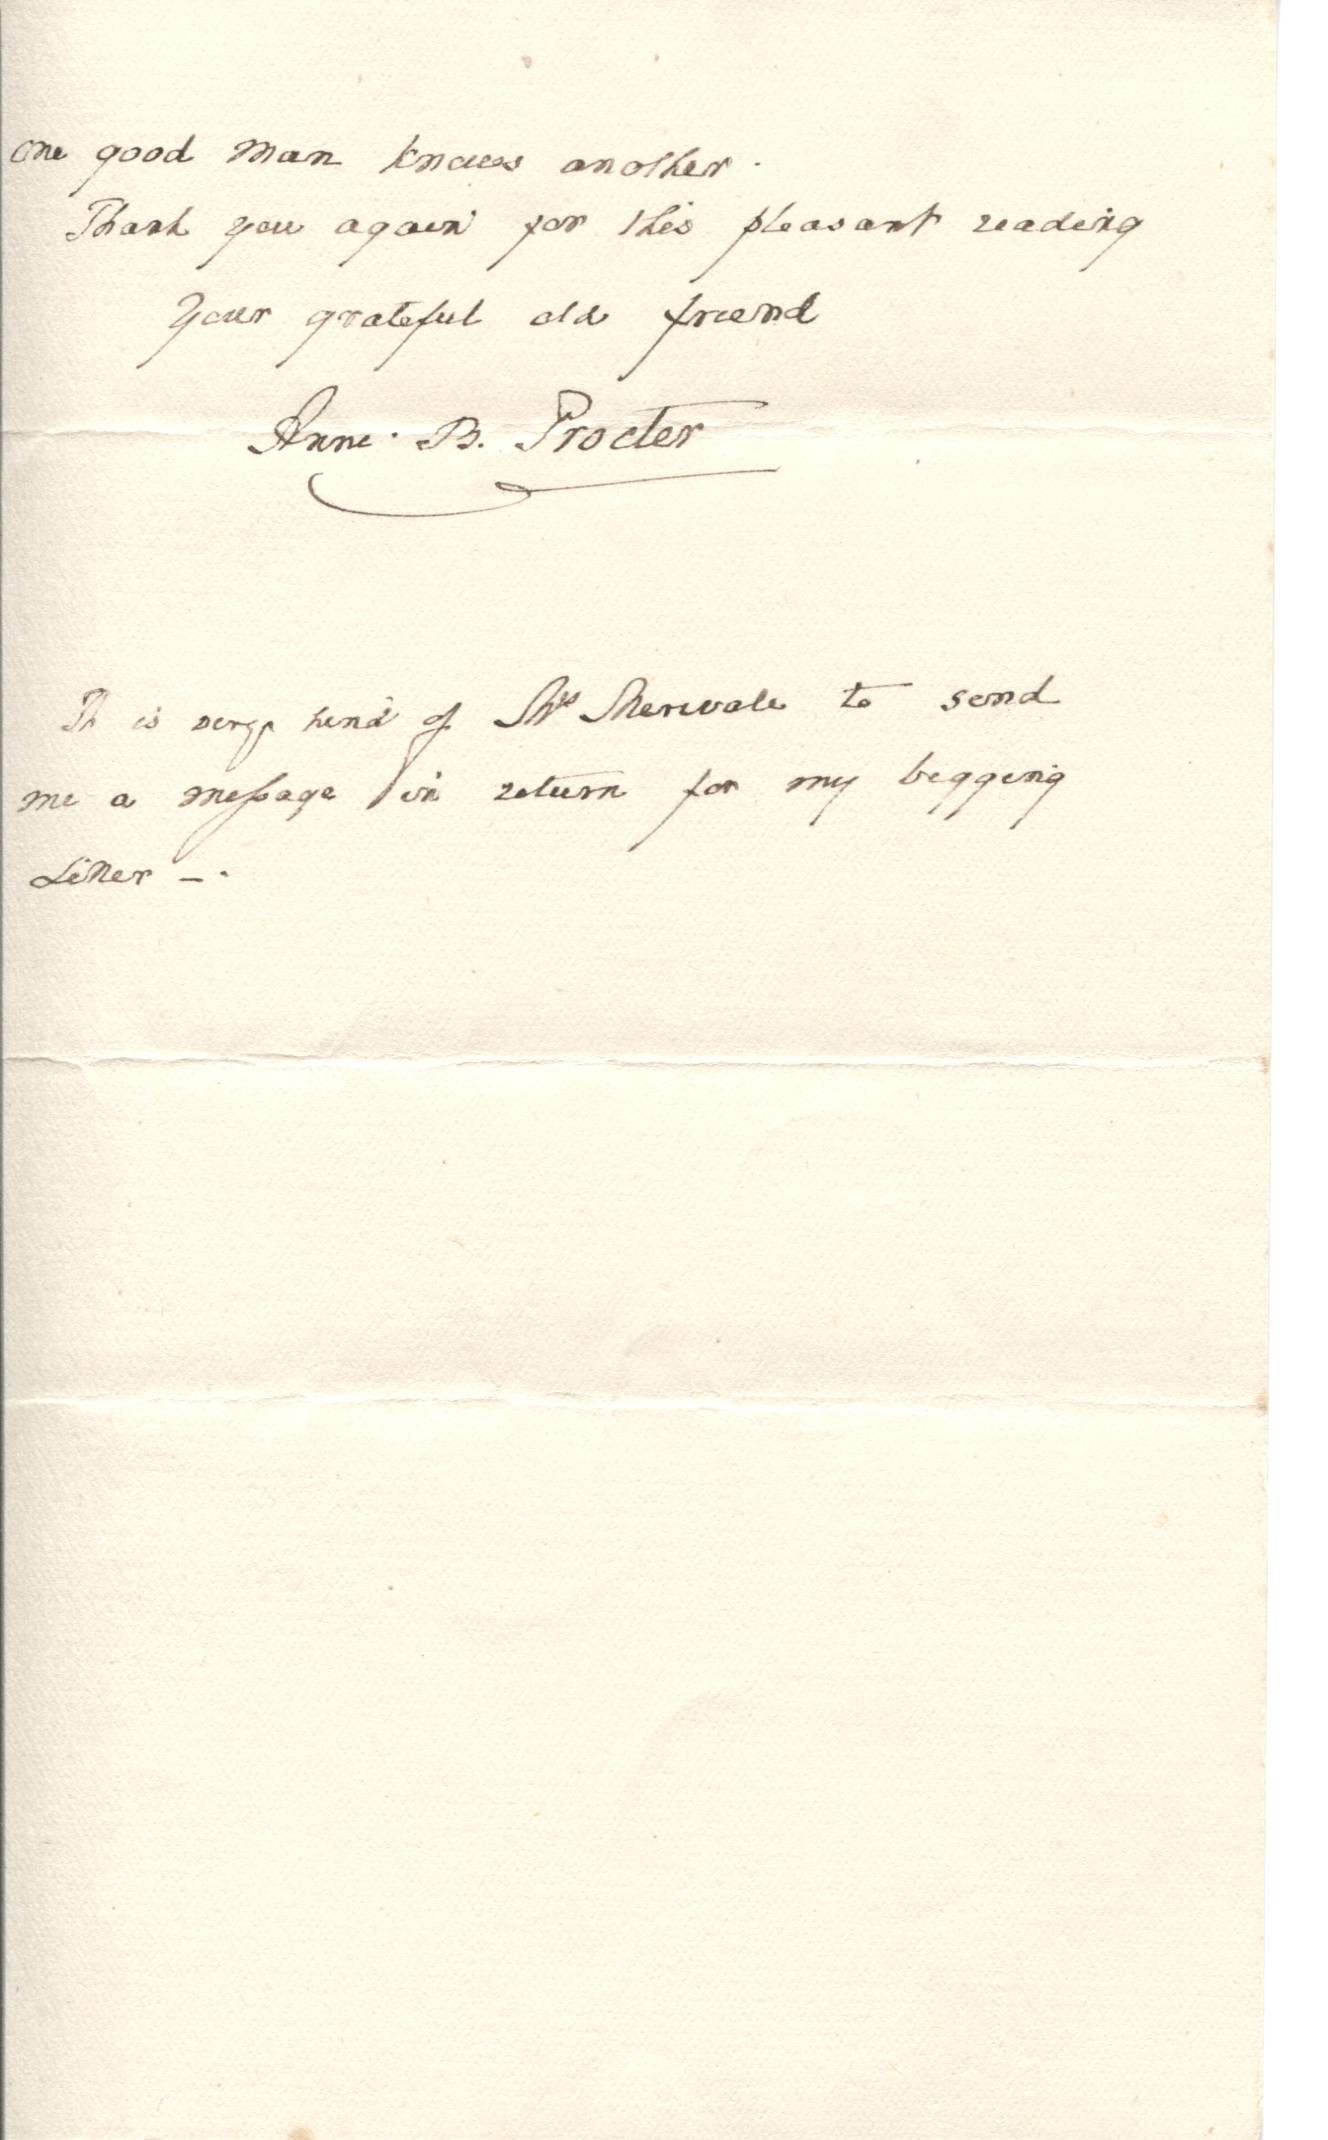 one good man knows another.
Thank you again for this pleasant reading
Your grateful old friend
Anne. B. Procter
It is very kind of Mrs Merivale to send
me a message in return for my begging
Letter -.